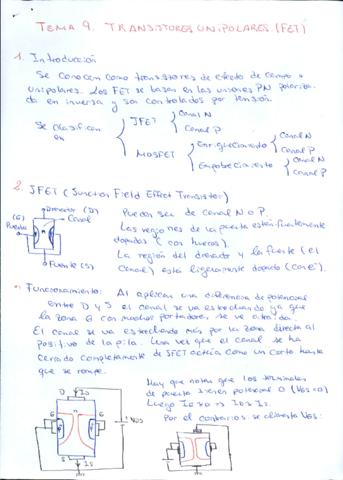 TEMA 9. TRANSISTORES UNIPOLARES (FET)
1. Introducción
Se conocen como transistores de efecto de campo o
unipolares. Los FET se basan en las uniones PN polariza-
da en inversa y son controlados por tensión.
Se clasifican en
JFET
Canal N
Canal P
MOSFET
Enriquecimiento
Canal N
Canal P
Empobrecimiento
Canal N
Canal P
2. JFET (Junction Field Effect Transistor)
Drenador (D)
(G) Puerta
Canal
n
Fuente (S)
Pueden ser de canal N o P.
Las regiones de la puerta están fuertemente
dopadas (con huecos).
La región del drenador y la fuente (el
canal) está ligeramente dopado (con e-).
Funcionamiento: Al aplicar una diferencia de potencial
entre D y S el canal se va estrechando ya que
la zona G con muchos portadores, se ve atraida.
El canal se va estrechando más por la zona directa al
positivo de la pila. Una vez que el canal se ha
cerrado completamente el JFET actúa como un corto hasta
que se rompe.
Hay que notar que los terminales
de puerta tienen potencial 0 (VGS=0)
Luego
Por el contrario se alimenta VGS:
D
ID
G
G
n
VDS
S
IS